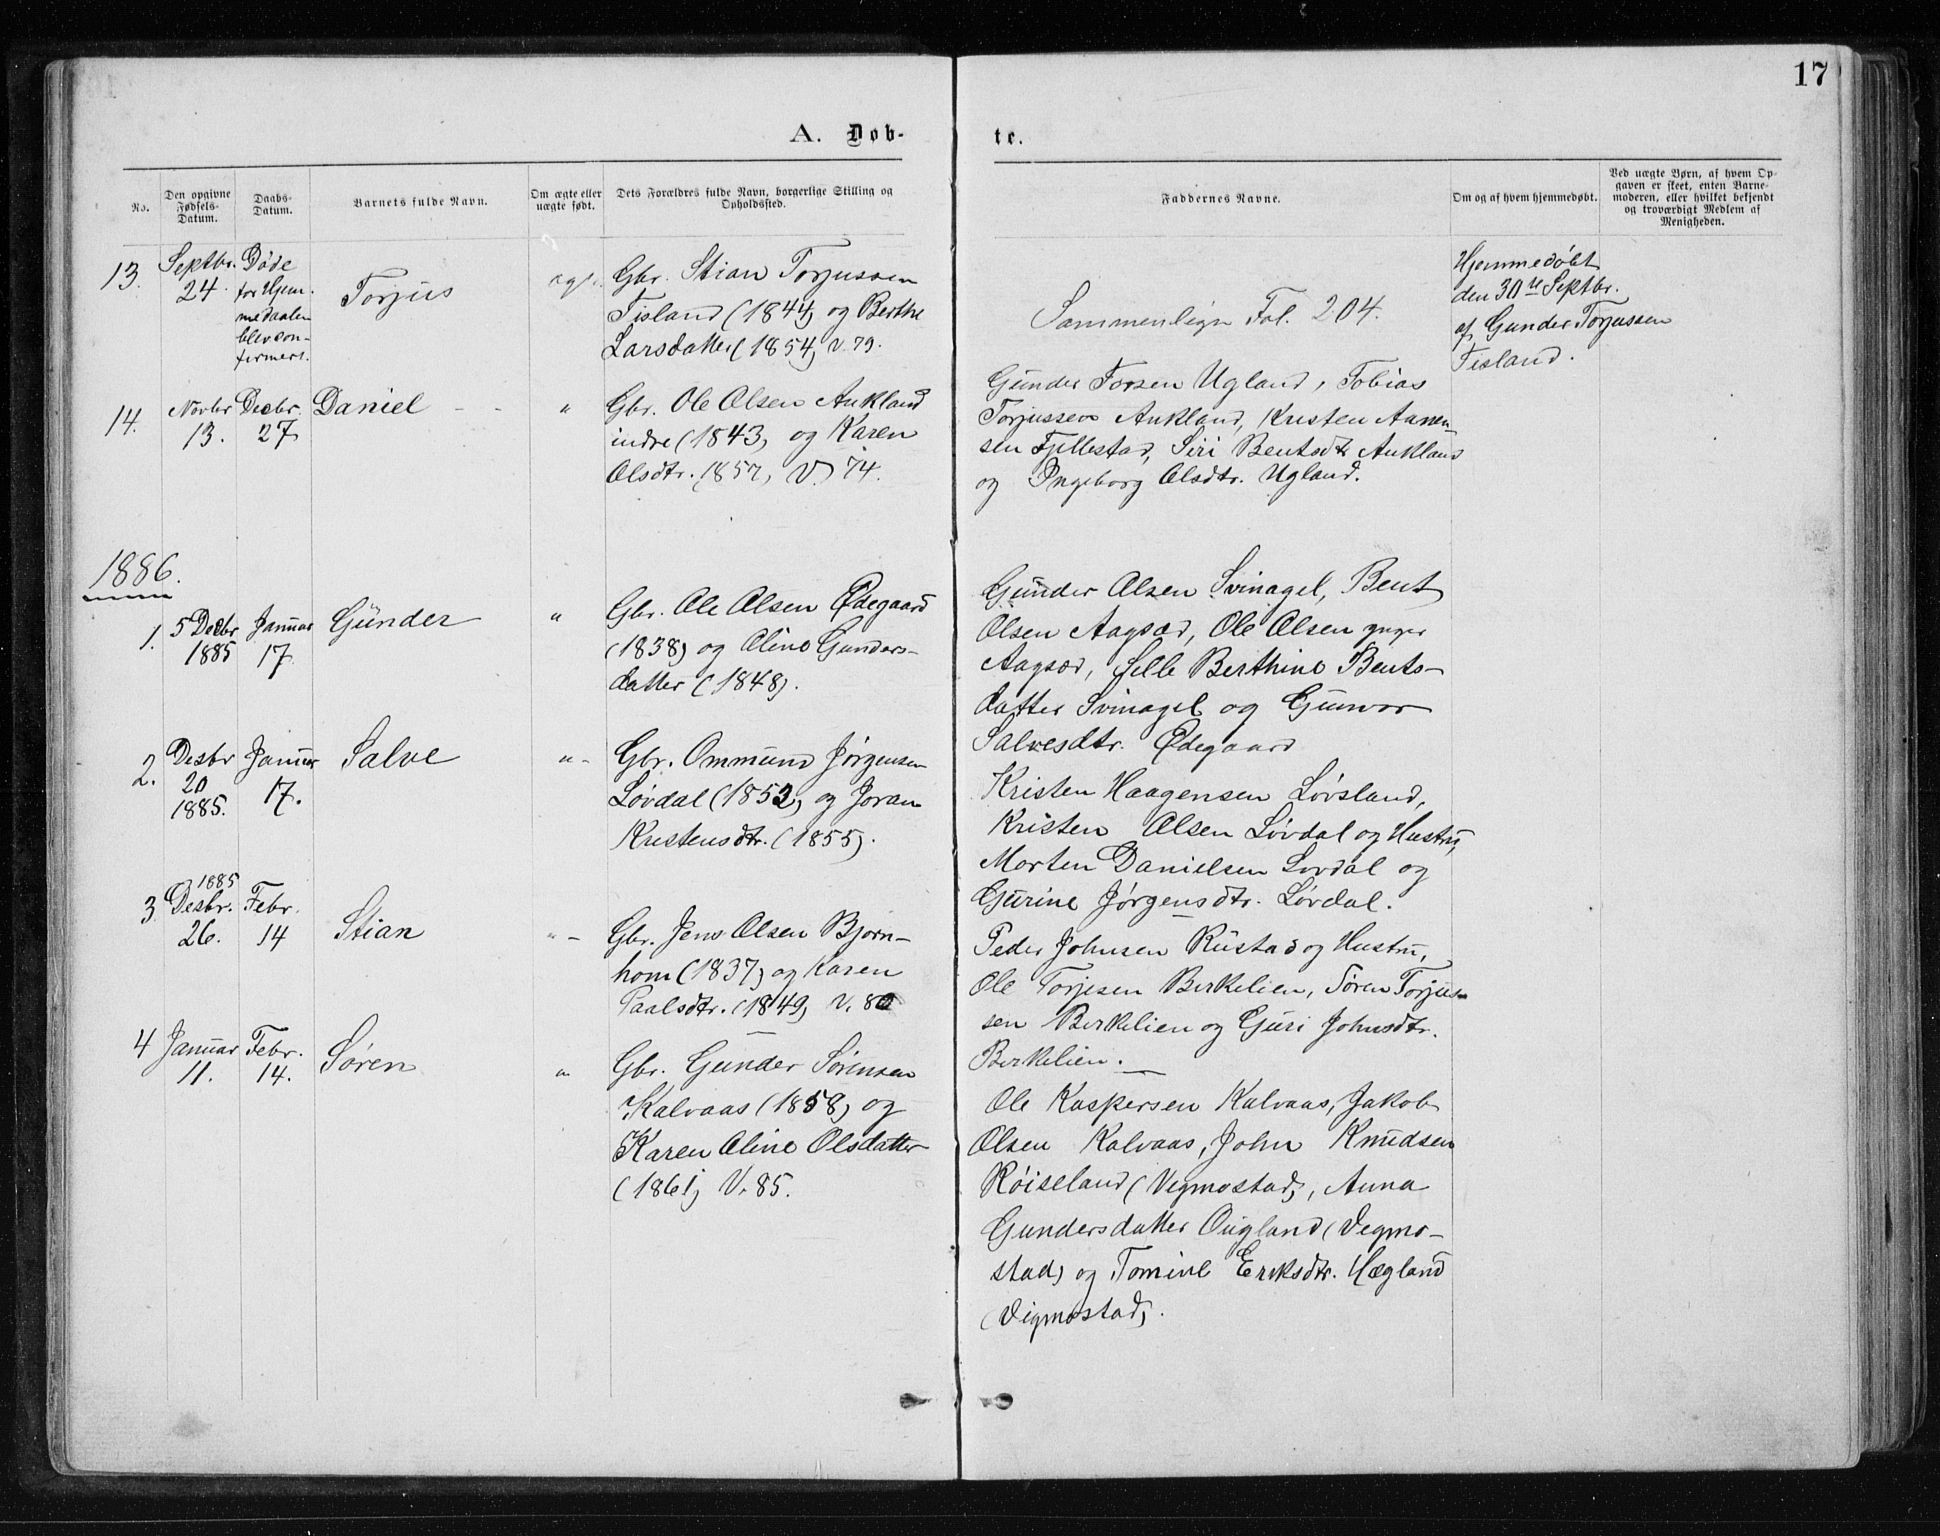 17
A. Døb-
te.
No.
Den opgivne Fødsels-Datum.
Daabs-Datum.
Barnets fulde Navn.
Om ægte eller uægte født.
Dets Forældres fulde Navn, borgerlige Stilling og Opholdssted.
Faddernes Navne.
Om og af hvem hjemmedøbt.
Ved uægte Børn, af hvem Opgaven er skeet, enten Barnemoderen, eller hvilket bekjendt og troværdigt Medlem af Menigheden.
13.
Septbr.
24.
Døde
før Hjem-
medaaben
blev con-
firmert.
Torjus
Gbr. Stian Torjussen
Fisland (1844) og Berthe
Larsdatter (1854) v. 79.
Sammenlign Fol. 204.
Hjemmedøbt
den 30te Septbr.
af Gunder Torjussen
Fisland.
14.
Novbr
13.
Decbr.
27
Daniel - -
"
Gbr. Ole Olsen Aukland
indre (1843) og Karen
Olsdtr. (1857) V. 74.
Gunder Torsen Ugland, Tobias
Torjussen Aukland, Kristen Aanen-
sen Fjellestad, Siri Bentsdtr Aukland
og Ingeborg Olsdtr. Ugland.
1886.
1.
5 Decbr
1885
Januar
17
Gunder
"
Gbr. Ole Olsen Ødegaard
(1838) og Aline Gunders-
datter (1848).
Gunder Olsen Svinagel, Bent
Olsen Aagsæd, Ole Olsen yngre
Aagsæd, Selle Berthine Bents-
datter Svinagel og Gunvor
Salvesdtr. Ødegaard
2.
Desbr
20
1885.
Januar
17.
Salve
" -
Gbr. Ommund Jørgensen
Løvdal (1852) og Joran
Kristensdtr. (1855).
Kristen Haagensen Løvsland,
Kristen Olsen Løvdal og Hustru,
Morten Danielsen Løvdal og
Gurine Jørgensdtr. Løvdal.
3
1885
Desbr.
26.
Febr.
14
Stian
" -
Gbr. Jens Olsen Bjørn-
hom (1837) og Karen
Paalsdtr. (1849) V. 80
Peder Johnsen Rustad og Hustru,
Ole Torjesen Birkelien, Søren Torjus-
sen Birkelien og Guri Johnsdtr.
Birkelien.
4
Januar
11.
Febr.
14.
Søren
"
Gbr. Gunder Sørensen
Kalvaas (1858) og
Karen Aline Olsdatter
(1861) V. 85.
Ole Kaspersen Kalvaas, Jakob
Olsen Kalvaas, John Knudsen
Røiseland (Vegmostad), Anna
Gundersdatter Ougland (Vegmo-
stad) og Tomine Eriksdtr. Hægland
(Vigmostad).